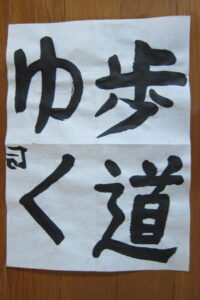 歩道
ゆく